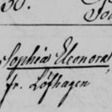 30.
Sophia Eleonora,
fr. Löfhagen